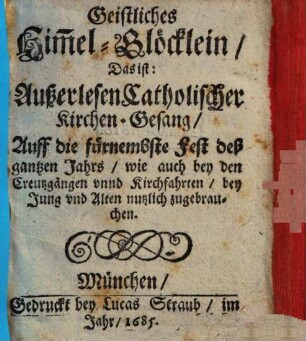 Geistliches
Him̃el-Glöcklein /
Das ist:
Außerlesen Catholischer
Kirchen-Gesang /
Auff die fürnembste Fest deß
gantzen Jahrs / wie auch bey den
Creutzgängen vnnd Kirchfahrten / bey
Jung vnd Alten nutzlich zugebrau-
chen.
München /
Gedruckt bey Lucas Straub / im
Jahr / 1685.